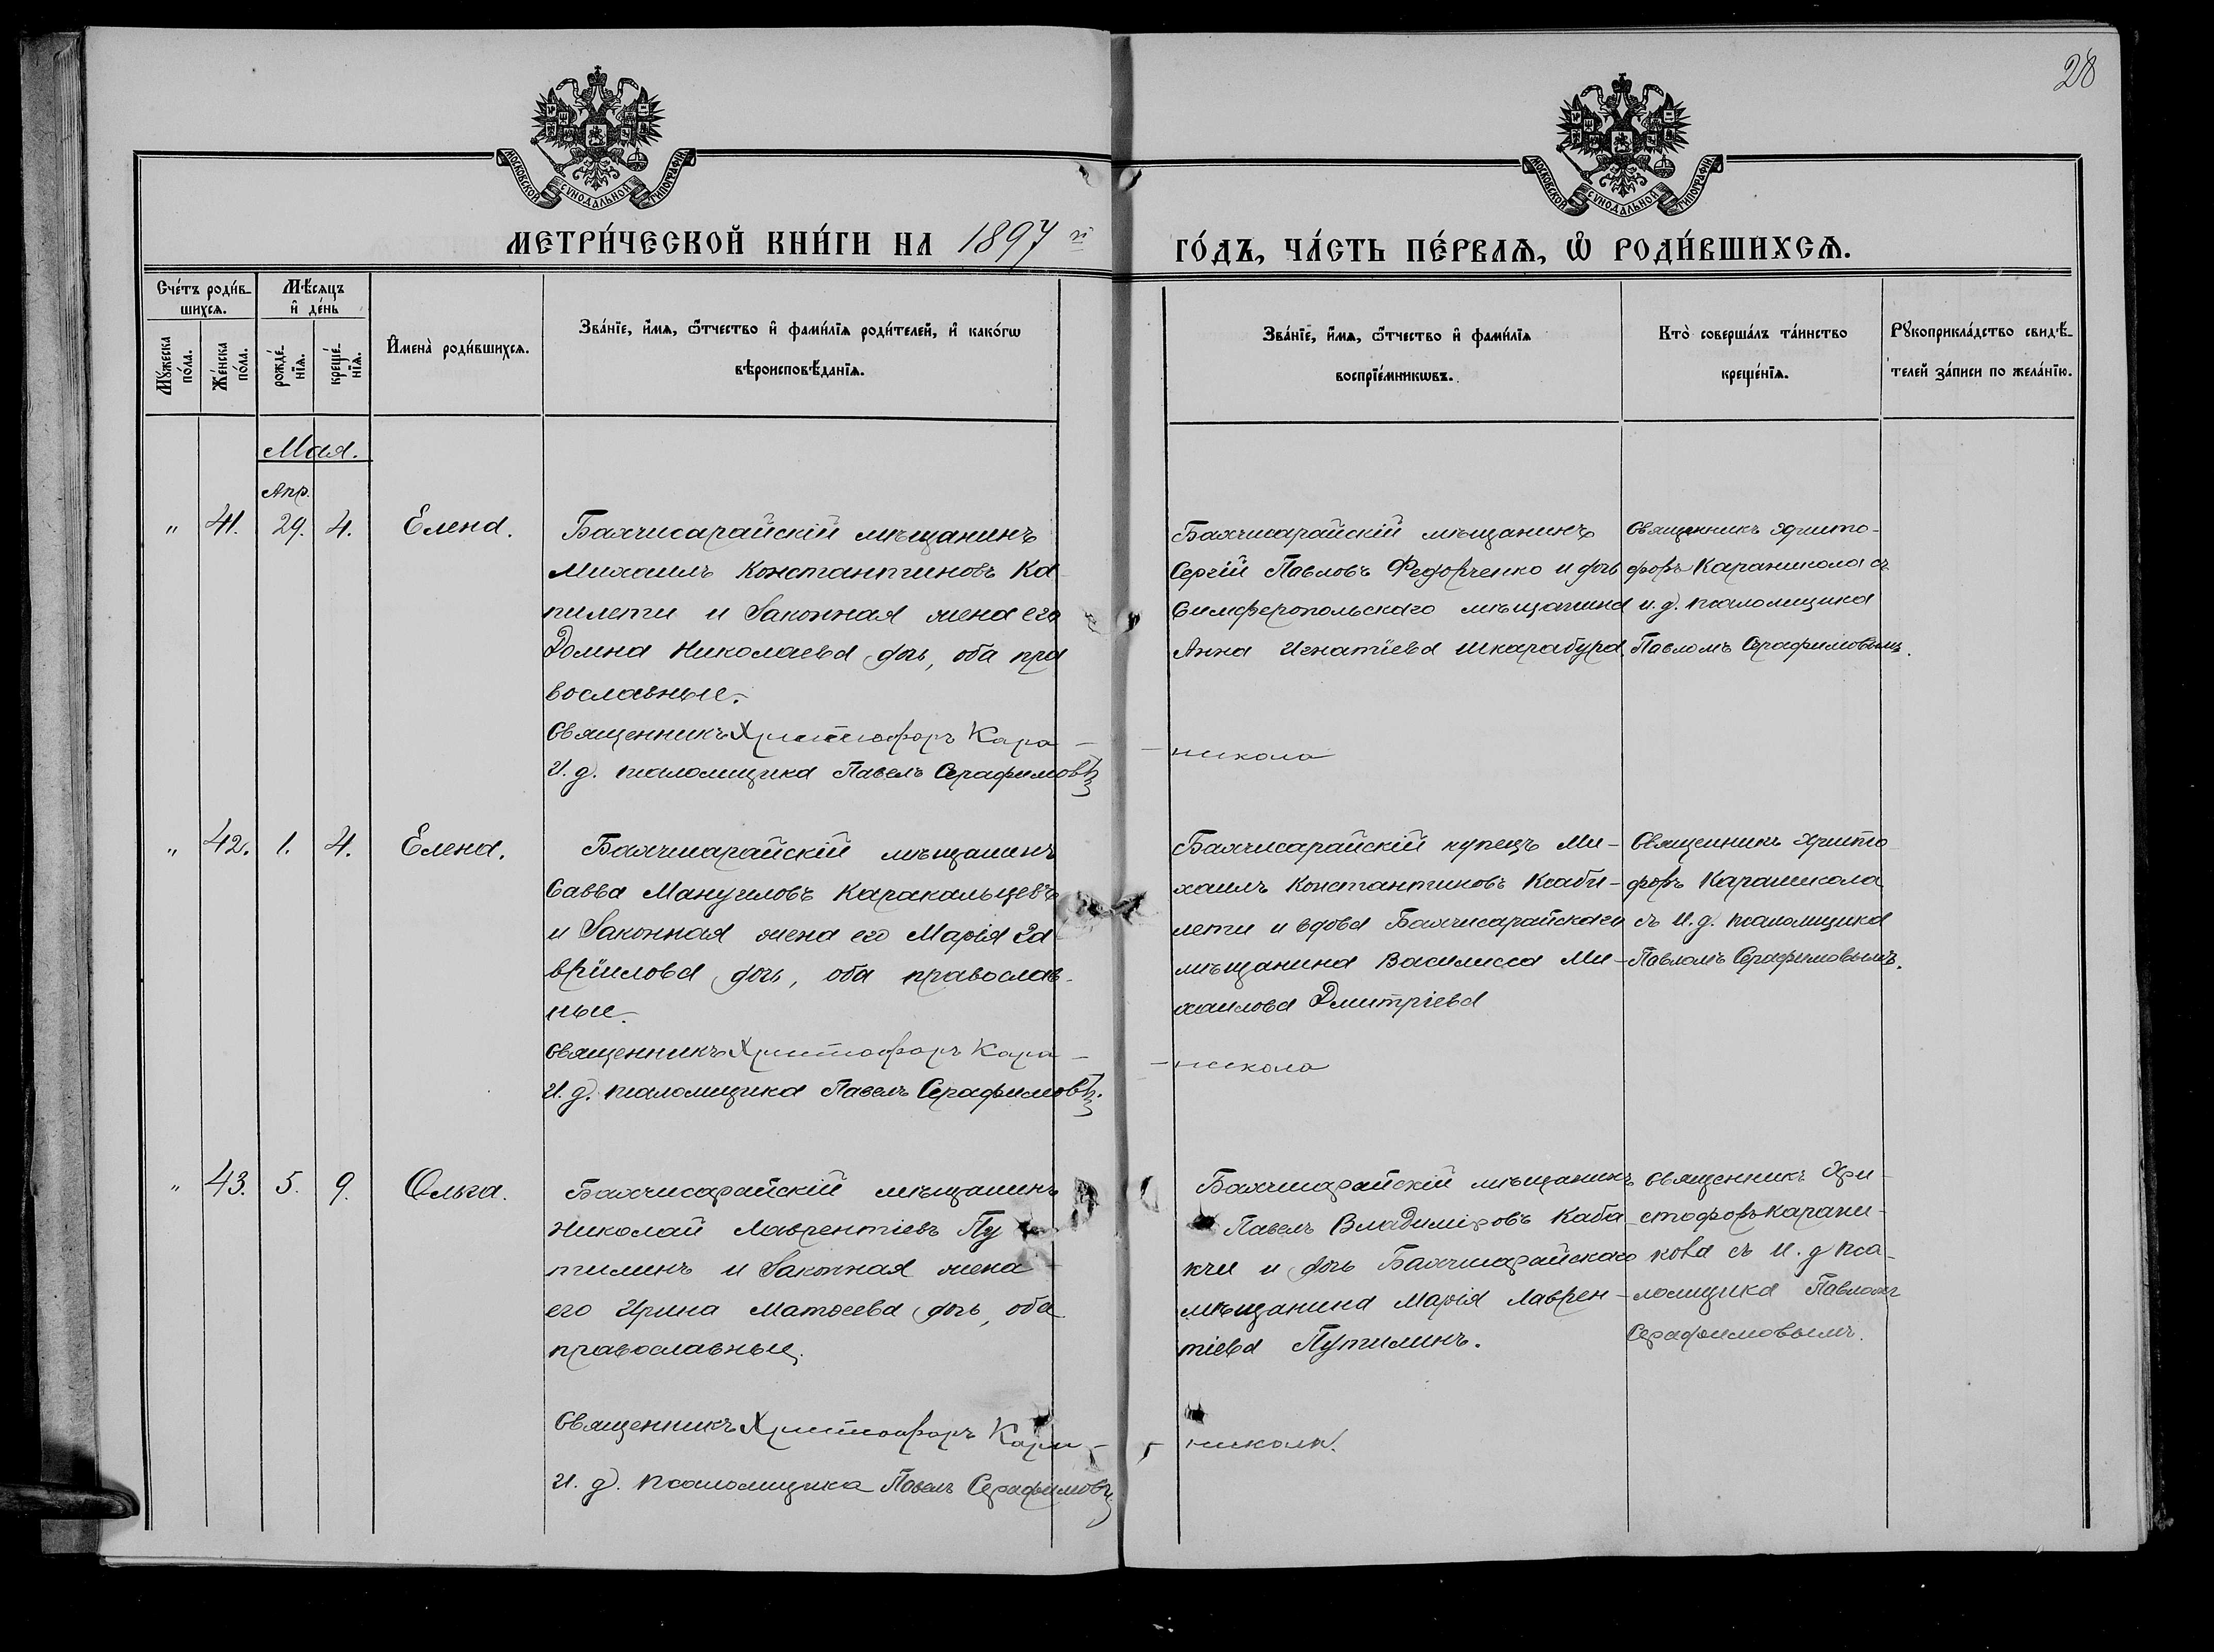 28
МОСКОВСКОЙ СѴНОДАЛЬНОЙ ТИПОГРАФІИ
МОСКОВСКОЙ СѴНОДАЛЬНОЙ ТИПОГРАФІИ
МЕТРИ́ЧЕСКОЙ КНИ́ГИ НА 1897 й
ГО́ДЪ, ЧА́СТЬ ПЕ́РВАѦ, Ѡ РОДИ́ВШИХСѦ.
Сче́тъ роди́в-
шихсѧ.
Мꙋ́жеска по́ла.
Же́нска по́ла.
Мѣ́сѧцъ
и҆ де́нь
рожде́-
нїѧ.
креще́-
нїѧ.
И҆мена̀ роди́вшихсѧ.
Зва́нїе, и҆́мѧ, ѻ҆́тчество и҆ фами́лїѧ роди́телей, и҆ како́гѡ
вѣроисповѣ́данїѧ.
Зва́нїе, и҆́мѧ, ѻ҆́тчество и҆ фами́лїѧ
воспрїе́мникѡвъ.
Кто̀ соверша́лъ та́инство
креще́нїѧ.
Рꙋкоприкла́дство свидѣ́-
телей за́писи по жела́нїю.
Мая.
Апр.
" 41. 29. 4. Елена.
Бахчисарайскій мѣщанинъ
Михаилъ Константиновъ Ка-
пилети и законная жена его
Домна Николаева дочь, оба пра
вославные.
Священникъ Христофоръ Кара-
И. д. псаломщика Павелъ Серафимовъ
Бахчисарайскій мѣщанинъ
Сергій Павловъ Федорченко и дочь
Симферопольскаго мѣщанина
Анна Игнатіева Шкарабура.
-никола
Священникъ Христо-
форъ Караникола съ
и. д. псаломщика
Павломъ Серафимовымъ.
" 42. 1. 4. Елена.
Бахчисарайскій мѣщанинъ
Савва Мануиловъ Каракальцевъ
и законная жена его Марія Га-
вріилова дочь, оба православ-
ные.
Священникъ Христофоръ Кара-
И. д. псаломщика Павелъ Серафимовъ.
Бахчисарайскій купецъ Ми-
хаилъ Константиновъ Ксаби-
лети и вдова Бахчисарайскаго
мѣщанина Василисса Ми-
хаилова Дмитріева
-никола
Священникъ Христо
форъ Караникола
съ И. д. псаломщика
Павломъ Серафимовымъ.
" 43. 5. 9. Ольга.
Бахчисарайскій мѣщанинъ
Николай Лаврентіевъ Пу
тилинъ и законная жена
его Ирина Матвеева дочь, оба
православные.
Священникъ Христофоръ Кара-
И. д. псаломщика Павелъ Серафимовъ
Бахчисарайскій мѣщанинъ
Павелъ Владиміровъ Каба
кчи и дочь Бахчисарайскаго
мѣщанина Марія Лаврен-
тіева Путилинъ.
-никола.
Священникъ Хри-
стофоръ Карани-
кола съ И. д. пса-
ломщика Павломъ
Серафимовымъ.